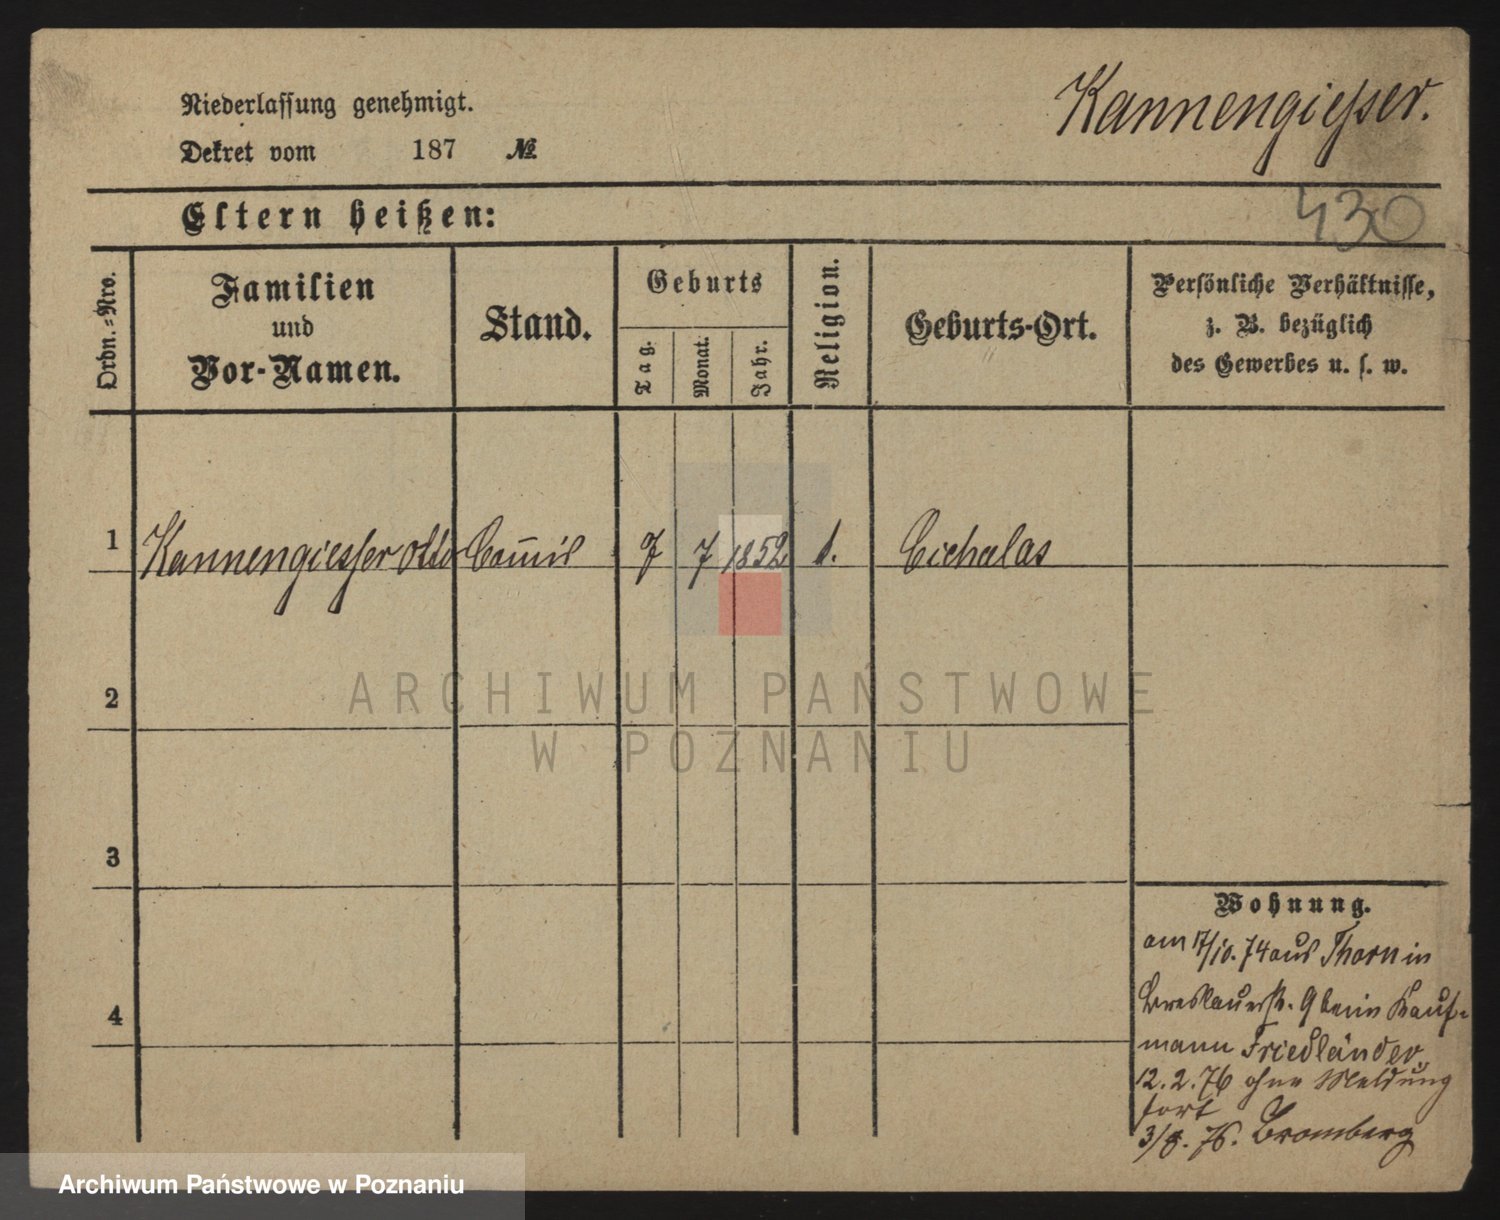 Niederlassung genehmigt.
Dekret vom 187 №
Kannengiesser.
430
Eltern heißen:
Ordn.=Nro.
Familien
und
Vor-Namen.
Stand.
Geburts
Tag.
Monat.
Jahr.
Religion.
Geburts-Ort.
Persönliche Verhältnisse,
z. B. bezüglich
des Gewerbes u. s. w.
1 Kannengiesser Otto Comis 7 7 1852
2
3
4
ARCHIWUM PAŃSTWOWE
W POZNANIU
Wohnung.
am 17/10. 74 aus Thorn in
Breslauerstr. 9 beim Kauf-
mann Friedländer.
12. 2. 76 ohne Meldung
fort
3/8. 76. Bromberg
Archiwum Państwowe w Poznaniu